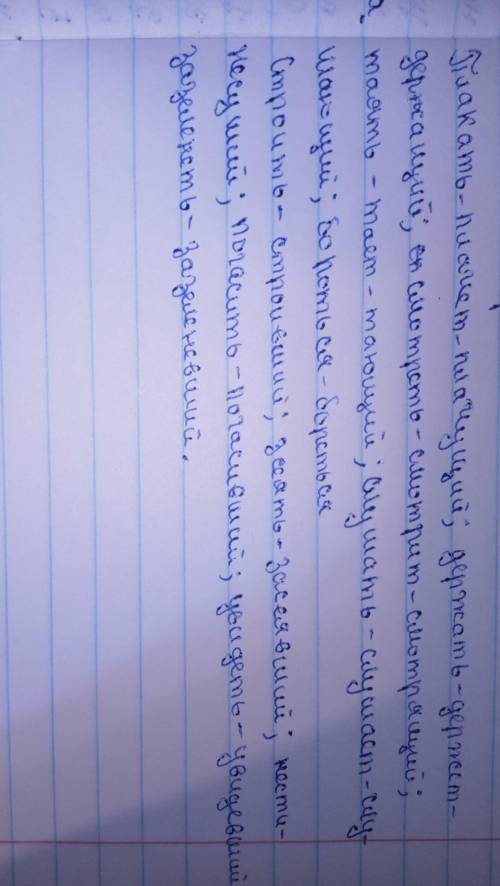 Плакать-плачет-плачущий; держать-держет-
держащий; смотреть-смотрит-смотрящий;
таять-тает-тающий; слушать-слушает-слу-
шающий; бороться-борется
Строить-строивший; засеявший; нести-
несущий; погасить-погасивший; увидеть-увидевший
зазеленеть-зазеленевший.